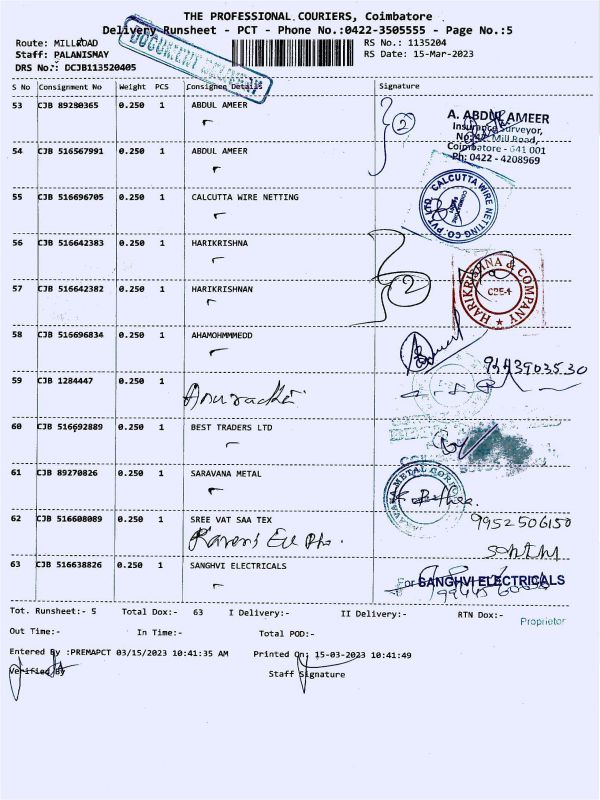 THE PROFESSIONAL COURIERS, Coimbatore
Delivery Runsheet - PCT - Phone No.:0422-3505555 - Page No.:5
Route: MILLROAD
RS No.: 1135204
Staff: PALANISMAY
RS Date: 15-Mar-2023
DRS No.: DCJB113520405
DOCUMENT DELIVERY
S No Consignment No Weight PCS Consignee Details Signature
53 CJB 89280365 0.250 1 ABDUL AMEER
2
A. ABDUL AMEER
Insurance Surveyor,
Mill Road,
Coimbatore - 641 001
Ph: 0422 - 4208969
54 CJB 516567991 0.250 1 ABDUL AMEER
55 CJB 516696705 0.250 1 CALCUTTA WIRE NETTING
CALCUTTA WIRE NETTING CO. PVT. LTD.
56 CJB 516642383 0.250 1 HARIKRISHNA
2
HARIKRISHNA & COMPANY
CBE-1
57 CJB 516642382 0.250 1 HARIKRISHNAN
58 CJB 516696834 0.250 1 AHAMOHMMMEDD
9443903530
59 CJB 1284447 0.250 1
60 CJB 516692889 0.250 1 BEST TRADERS LTD
61 CJB 89270826 0.250 1 SARAVANA METAL
SARAVANA METAL CORPN
62 CJB 516608089 0.250 1 SREE VAT SAA TEX
9952506150
63 CJB 516638826 0.250 1 SANGHVI ELECTRICALS
For SANGHVI ELECTRICALS
Proprietor
Tot. Runsheet:- 5 Total Dox:- 63 I Delivery:- II Delivery:- RTN Dox:-
Out Time:- In Time:- Total POD:-
Entered By :PREMAPCT 03/15/2023 10:41:35 AM Printed On: 15-03-2023 10:41:49
Verified By Staff Signature